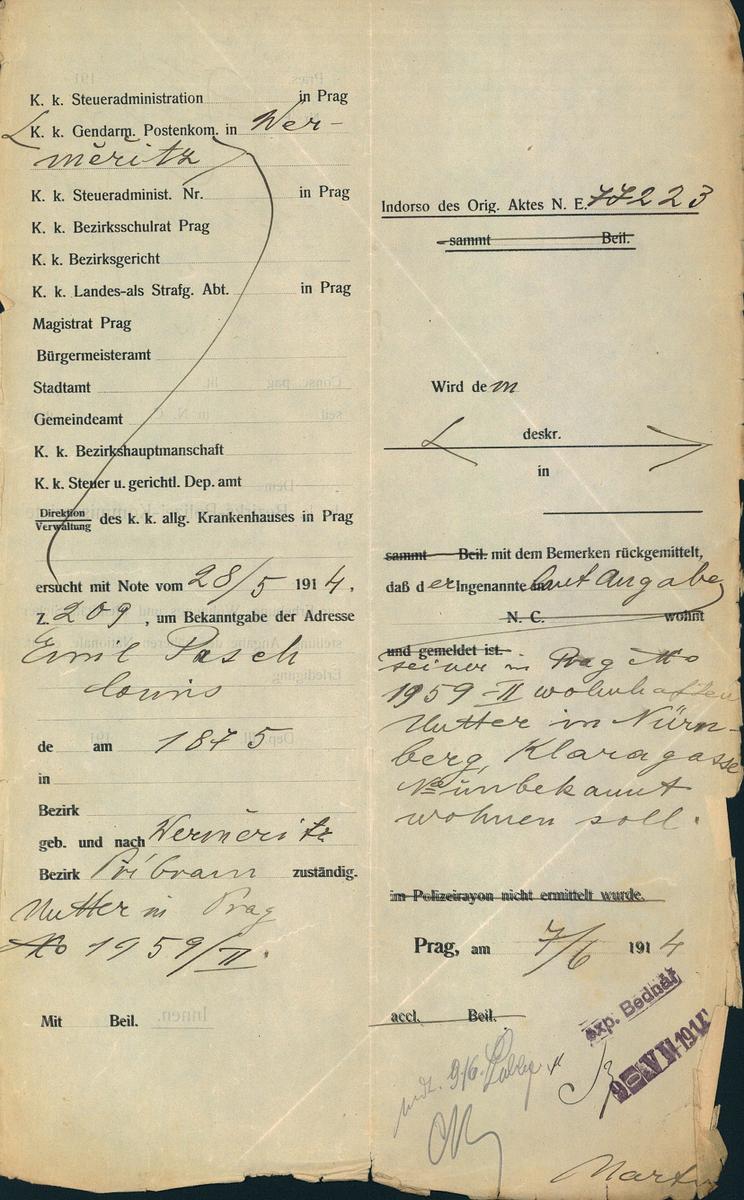 K. k. Steueradministration in Prag
K. k. Gendarm. Postenkom. in Wer-
měritz
K. k. Steueradminist. Nr. in Prag
K. k. Bezirksschulrat Prag
K. k. Bezirksgericht
K. k. Landes-als Strafg. Abt. in Prag
Magistrat Prag
Bürgermeisteramt
Stadtamt
Gemeindeamt
K. k. Bezirkshauptmanschaft
K. k. Steuer u. gerichtl. Dep. amt
Direktion
Verwaltung des k. k. allg. Krankenhauses in Prag
ersucht mit Note vom 28/5 1914.
Z. 209, um Bekanntgabe der Adresse
Emil Pasch
de am 1875
in
Bezirk
geb. und nach Werměritz
Bezirk Přibram zuständig.
Mutter in Prag
No 1959/II.
Mit Beil.
Indorso des Orig. Aktes N. E. 77223
sammt Beil.
Wird dem
deskr.
in
sammt Beil. mit dem Bemerken rückgemittelt,
daß der Ingenannte laut Angabe
N. C. wohnt
und gemeldet ist.
seiner in Prag No
1959-II wohnhaften
Mutter in Nürn-
berg, Klaragasse
No unbekannt
wohnen soll.
im Polizeirayon nicht ermittelt wurde.
Prag, am 7/6 1914
accl. Beil.
exp. Bednář
9/6.